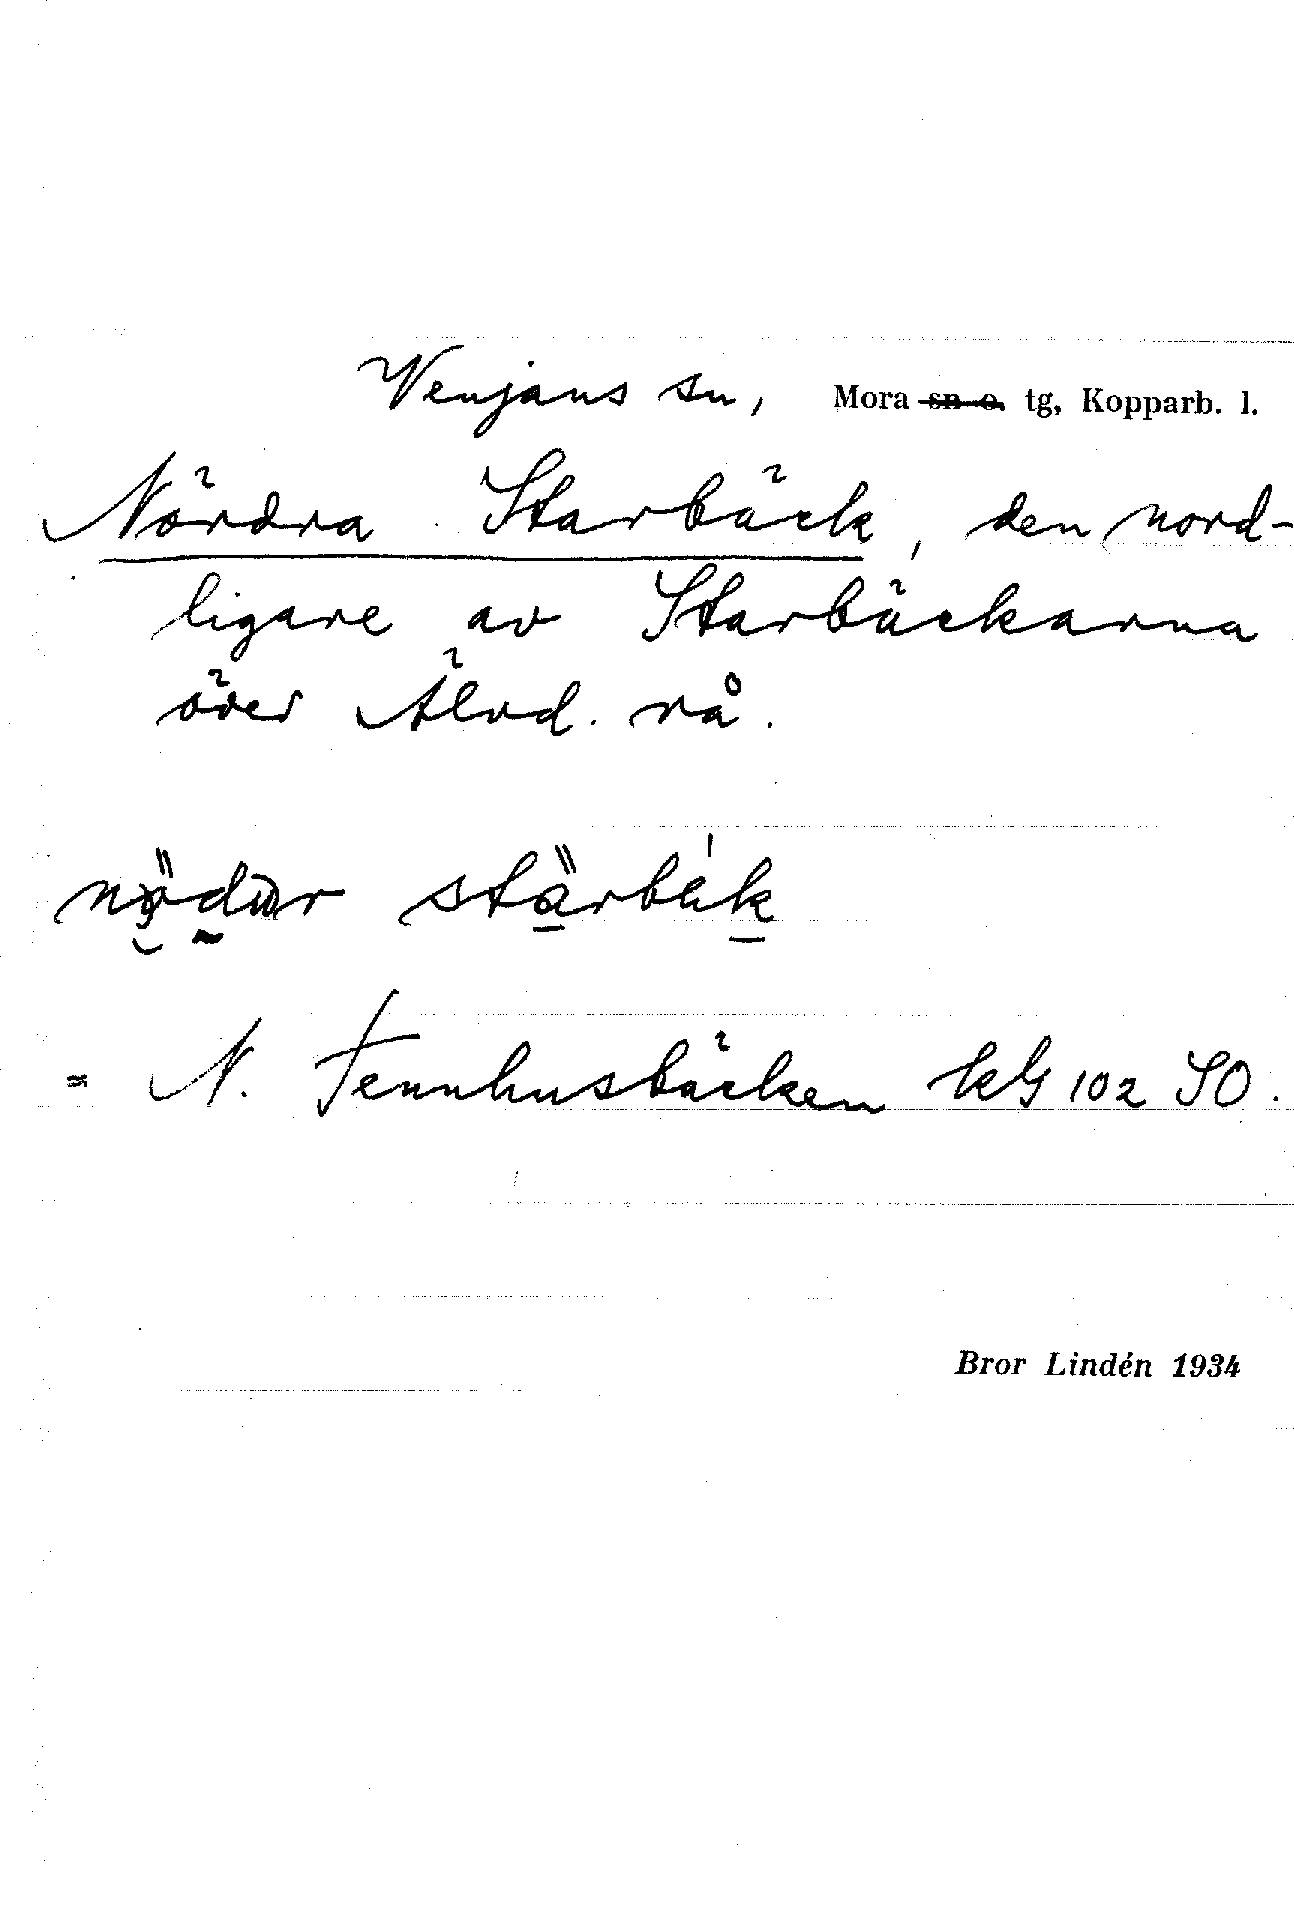 Venjans sn, Mora sn o. tg, Kopparb. l.
Nördra Starbäck, den nord-
ligare av Starbäckarna
över Älvd. rå.
= N. Tennhusbäcken kG 102 SO.
Bror Lindén 1934